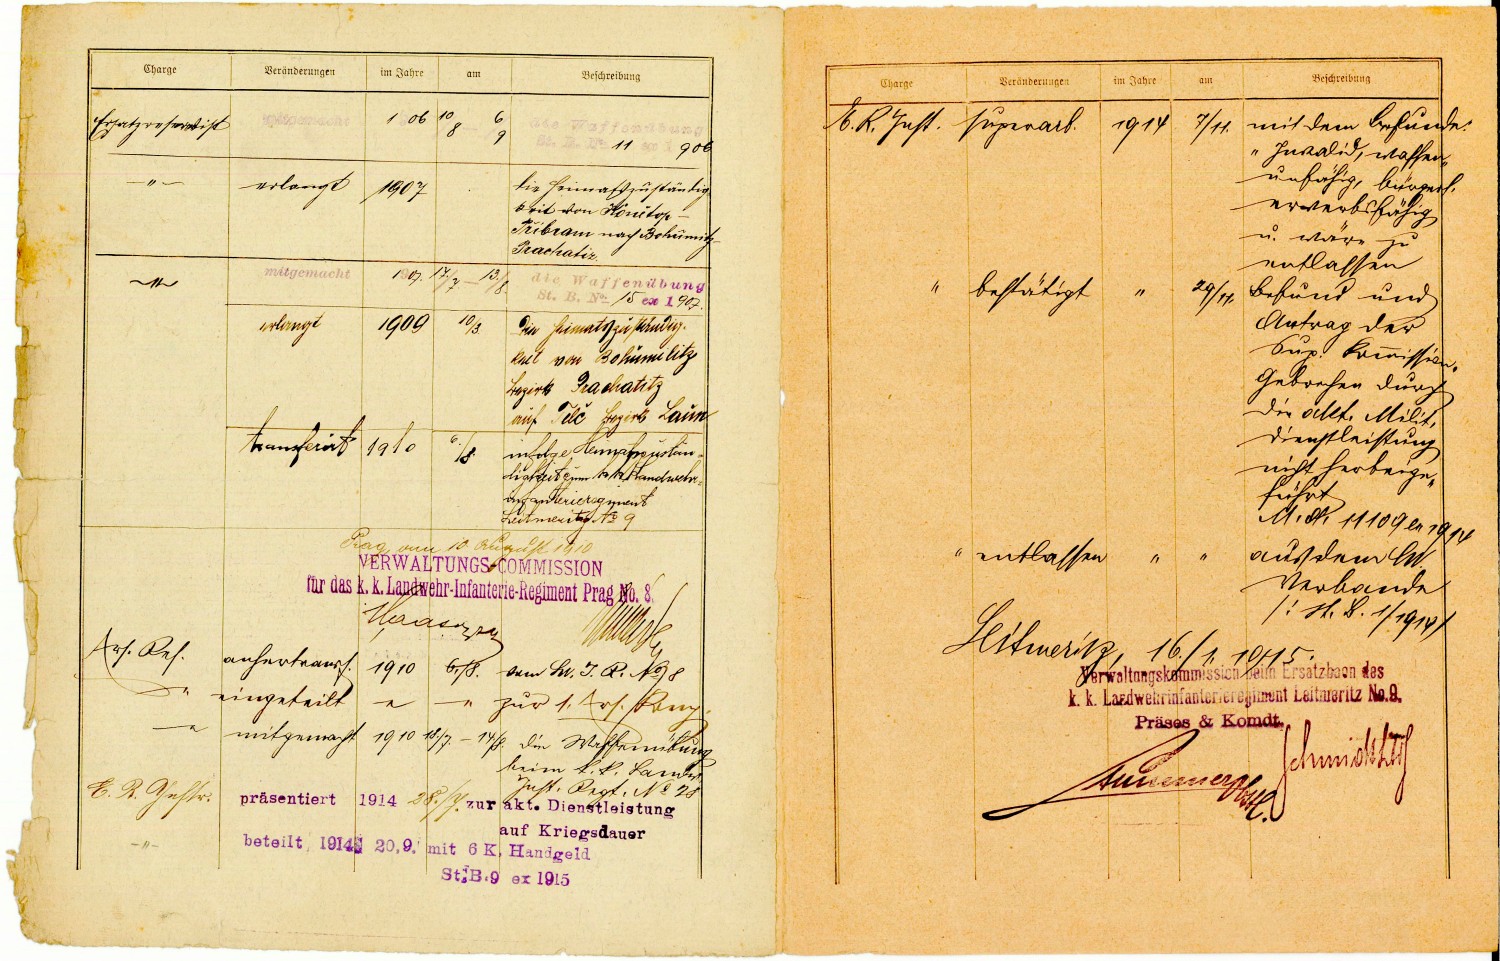 Charge Veränderungen im Jahre am Beschreibung
Ersatzreservist mitgemacht 1906 10/8 — 6/9 die Waffenübung
St. B. No 11 ex 1906
— " — erlangt 1907 die Heimatszuständig-
keit von
Přibram nach Bohumilitz
Prachatitz
— " — mitgemacht 1907 17./7 — 13./8. die Waffenübung
St. B. No 15 ex 1907.
erlangt 1909 10/3 die Heimatszuständig-
keit von Bohumilitz
Bezirk Prachatitz
auf Telč Bezirk Laun
transferirt 1910 6./8 infolge Heimatzustän-
digkeit zum k.k. Landwehr-
infanterieregiment
Leitmeritz No 9
Prag, am 10. August 1910
VERWALTUNGS-COMMISSION
für das k. k. Landwehr-Infanterie-Regiment Prag No. 8.
Ers. Res. anhertransf. 1910 6./8. vom Lw. I. R. No 8
" eingeteilt " " zur 1. Ers. Komp.
— " mitgemacht 1910 18./7. — 14/8. die Waffenübung
beim k. k. Landw.
Inft. Regt. No 28
E. R. Inftr. präsentiert 1914 28./7. zur akt. Dienstleistung
auf Kriegsdauer
— " — beteilt 1914 20.9. mit 6 K. Handgeld
St. B. 9 ex 1915
Charge Veränderungen im Jahre am Beschreibung
E. R. Inft. superarb. 1914 7/11. mit dem Befunde:
"Invalid, waffen-
unfähig, bürgerl.
erwerbsfähig
u. wäre zu
entlassen
" bestätigt " 29/11. Befund und
Antrag der
Sup. Kommission.
Gebrechen durch
die akt. Milit.
dienstleistung
nicht herbeige-
führt
M. A. 11109 ex 1914
" entlassen " " aus dem Lw.
Verbande
/: St. B. 1/1914/
Leitmeritz, 16./1. 1915.
Verwaltungskommission beim Ersatzbaon des
k. k. Landwehrinfanterieregiment Leitmeritz No. 9.
Präses & Komdt.
Schmidt